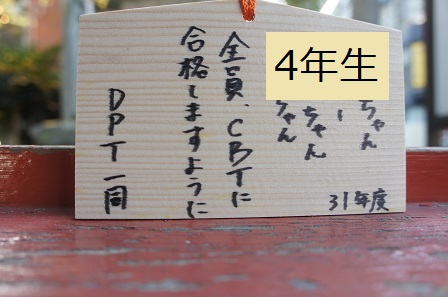 4年生
ちゃん
ちゃん
ちゃん
31年度
全員、CBTに
合格しますように
DPT一同